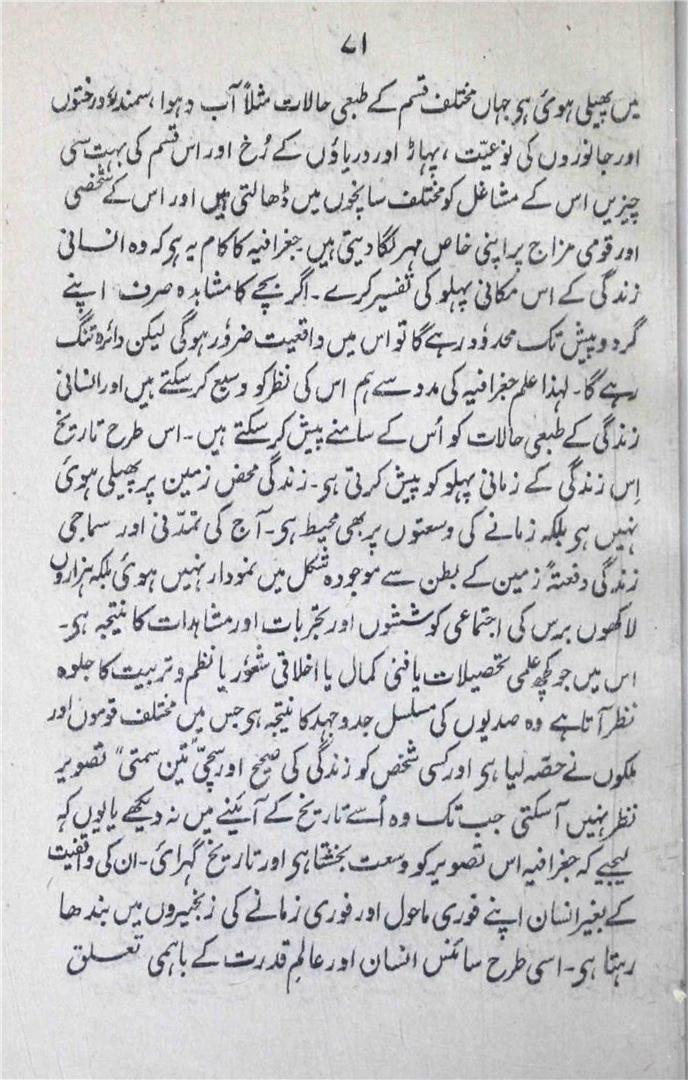 ۷۱
میں پھیلی ہوئی ہو جہاں مختلف قسم کے طبعی حالات مثلاً آب و ہوا، سمندر، درختوں
اور جانوروں کی نوعیّت، پہاڑ اور دریاؤں کے رُخ اور اس قسم کی بہت سی
چیزیں اس کے مشاغل کو مختلف سانچوں میں ڈھالتی ہیں اور اس کے شخصی
اور قومی مزاج پر اپنی خاص مہر لگا دیتی ہیں۔ جغرافیہ کا کام یہ ہو کہ وہ انسانی
زندگی کے اس مکانی پہلو کی تفسیر کرے۔ اگر بچے کا مشاہدہ صرف اپنے
گرد و پیش تک محدود رہے گا تو اس میں واقعیت ضرور ہوگی لیکن دائرہ تنگ
رہے گا۔ لہذا علم جغرافیہ کی مدد سے ہم اس کی نظر کو وسیع کر سکتے ہیں اور انسانی
زندگی کے طبعی حالات کو اُس کے سامنے پیش کر سکتے ہیں۔ اس طرح تاریخ
اِس زندگی کے زمانی پہلو کو پیش کرتی ہو۔ زندگی محض زمین پر پھیلی ہوئی
نہیں ہو بلکہ زمانے کی وسعتوں پر بھی محیط ہو۔ آج کی تمدّنی اور سماجی
زندگی دفعتہً زمین کے بطن سے موجودہ شکل میں نمودار نہیں ہوئی بلکہ ہزاروں
لاکھوں برس کی اجتماعی کوششوں اور تجربات اور مشاہدات کا نتیجہ ہو۔
اس میں جو کچھ علمی تحصیلات یا فنی کمال یا اخلاقی شعور یا نظم و تربیت کا جلوہ
نظر آتا ہے وہ صدیوں کی مسلسل جدوجہد کا نتیجہ ہو جس میں مختلف قوموں اور
ملکوں نے حصّہ لیا ہو اور کسی شخص کو زندگی کی صحیح اور سچّی "تین سمتی" تصویر
نظر نہیں آسکتی جب تک وہ اُسے تاریخ کے آئینے میں نہ دیکھے یا یوں کہ
لیجیے کہ جغرافیہ اس تصویر کو وسعت بخشتا ہو اور تاریخ گہرائی۔ ان کی واقفیت
کے بغیر انسان اپنے فوری ماحول اور فوری زمانے کی زنجیروں میں بندھا
رہتا ہو۔ اسی طرح سائنس انسان اور عالمِ قدرت کے باہمی تعلق